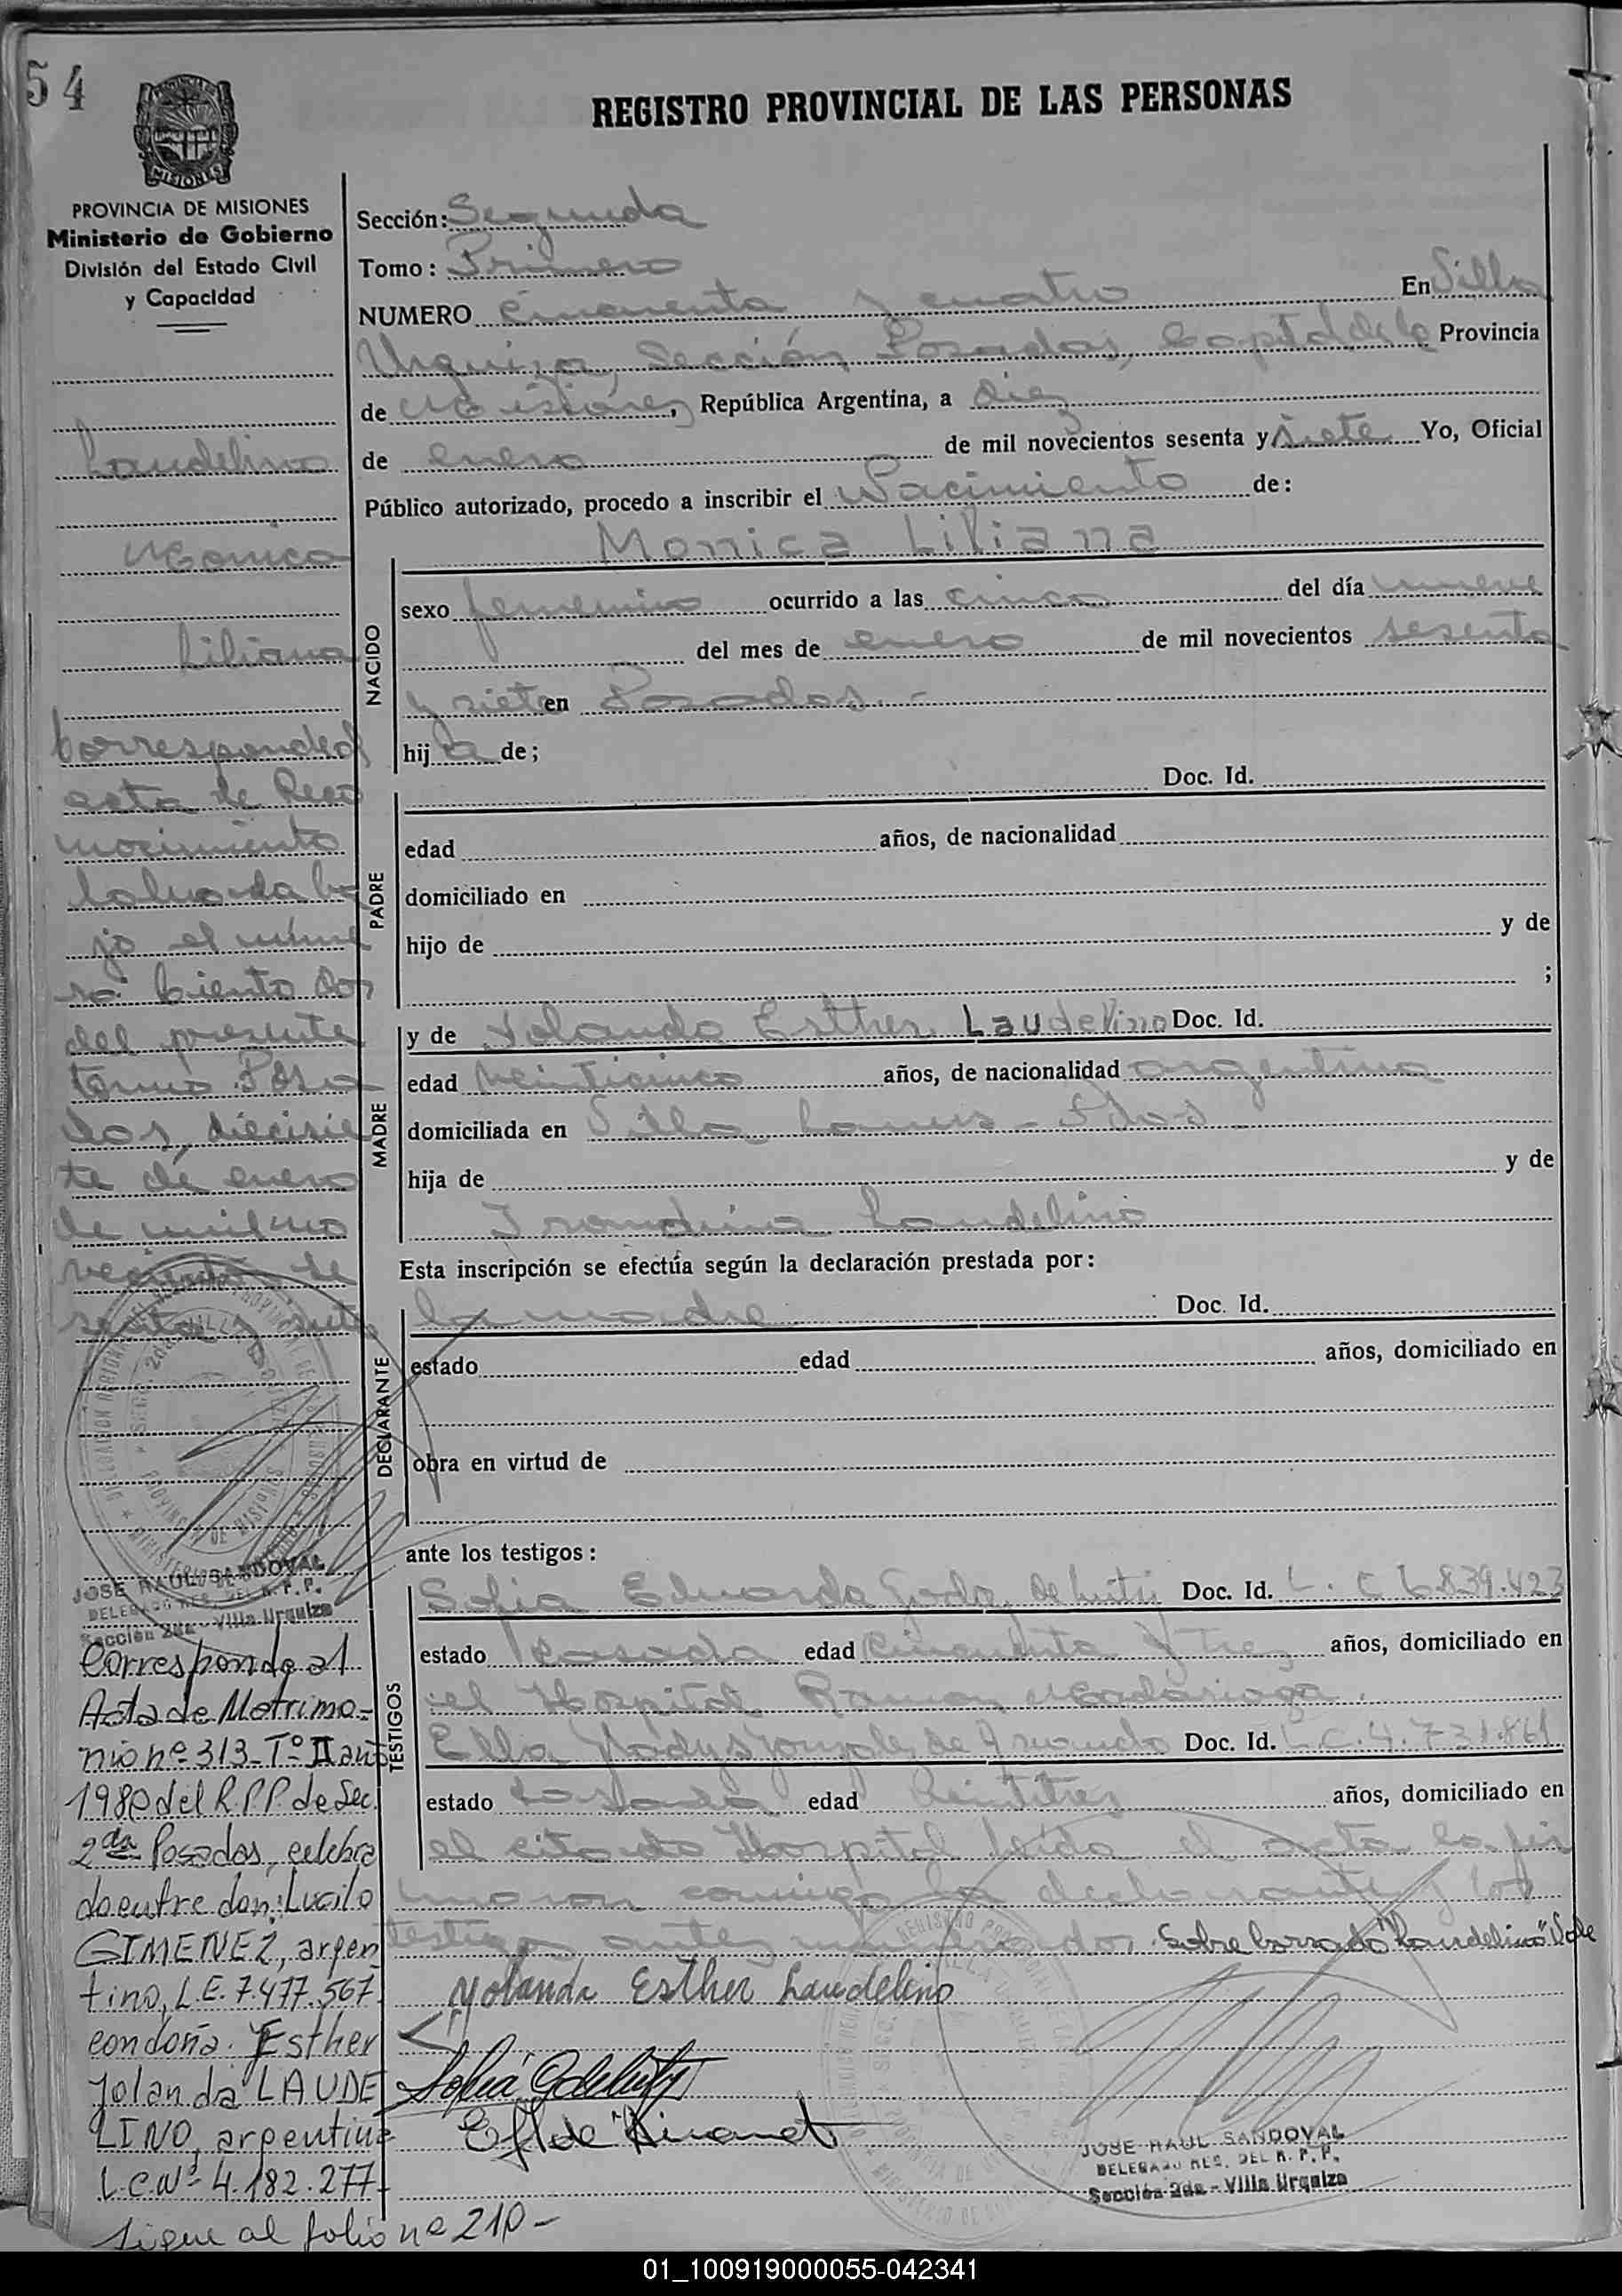 54
REGISTRO PROVINCIAL DE LAS PERSONAS
MISIONES
PROVINCIA DE MISIONES
Ministerio de Gobierno
División del Estado Civil
y Capacidad
Laudelino
Monica
Liliana
Corresponde al
acta de Reco
nocimiento
labrada ba
jo el nume
ro Ciento dos
del presente
tomo Posa
das, diecisie
te de enero
de mil no
vecientos se
senta y siete
JOSE RAUL SANDOVAL
DELEGADO REG. DEL R. P. P.
Sección 2da - Villa Urquiza
Corresponde al
Acta de Matrimo-
nio nº 313-Tº II año
1980 del R.P.P. de Sec.
2da Posadas, celebra
do entre don: Lucilo
GIMENEZ, argen
tino, L.E. 7.477.567
con doña: Esther
Yolanda LAUDE
LINO, argentina
L.C.Nº 4.182.277-
Sigue al folio nº 210-
Sección: Segunda
Tomo: Primero
NUMERO Cincuenta y cuatro En Villa
Urquiza, Sección Posadas, Capital de la Provincia
de Misiones, República Argentina, a diez
de enero de mil novecientos sesenta y siete Yo, Oficial
Público autorizado, procedo a inscribir el Nacimiento de:
Monica Liliana
NACIDO
sexo femenino ocurrido a las cinco del día nueve
del mes de enero de mil novecientos sesenta
y siete en Posadas.-
hij a de;
PADRE
Doc. Id.
edad años, de nacionalidad
domiciliado en
hijo de y de
;
MADRE
y de Yolanda Esther Laudelino Doc. Id.
edad Veinticinco años, de nacionalidad argentina
domiciliada en Villa Lanus - Pdas
hija de y de
Laudelino
Esta inscripción se efectúa según la declaración prestada por:
DECLARANTE
la madre Doc. Id.
estado edad años, domiciliado en
obra en virtud de
ante los testigos:
TESTIGOS
Sofia Eduarda Godoy de Doc. Id. L. C 6.839.423
estado Casada edad Cincuenta y tres años, domiciliado en
el Hospital Ramon Madariaga.
Ella Gladys Gonzalez de Doc. Id. L.C. 4.731.861
estado Casada edad Veintitres años, domiciliado en
el citado Hospital leida el acta la fir
maron conmigo la declarante y los
testigos antes mencionados. Sobre borrado "Laudelino" Vale
Yolanda Esther Laudelino
JOSE RAUL SANDOVAL
DELEGADO REG. DEL R. P. P.
Sección 2da - Villa Urquiza
01_100919000055-042341